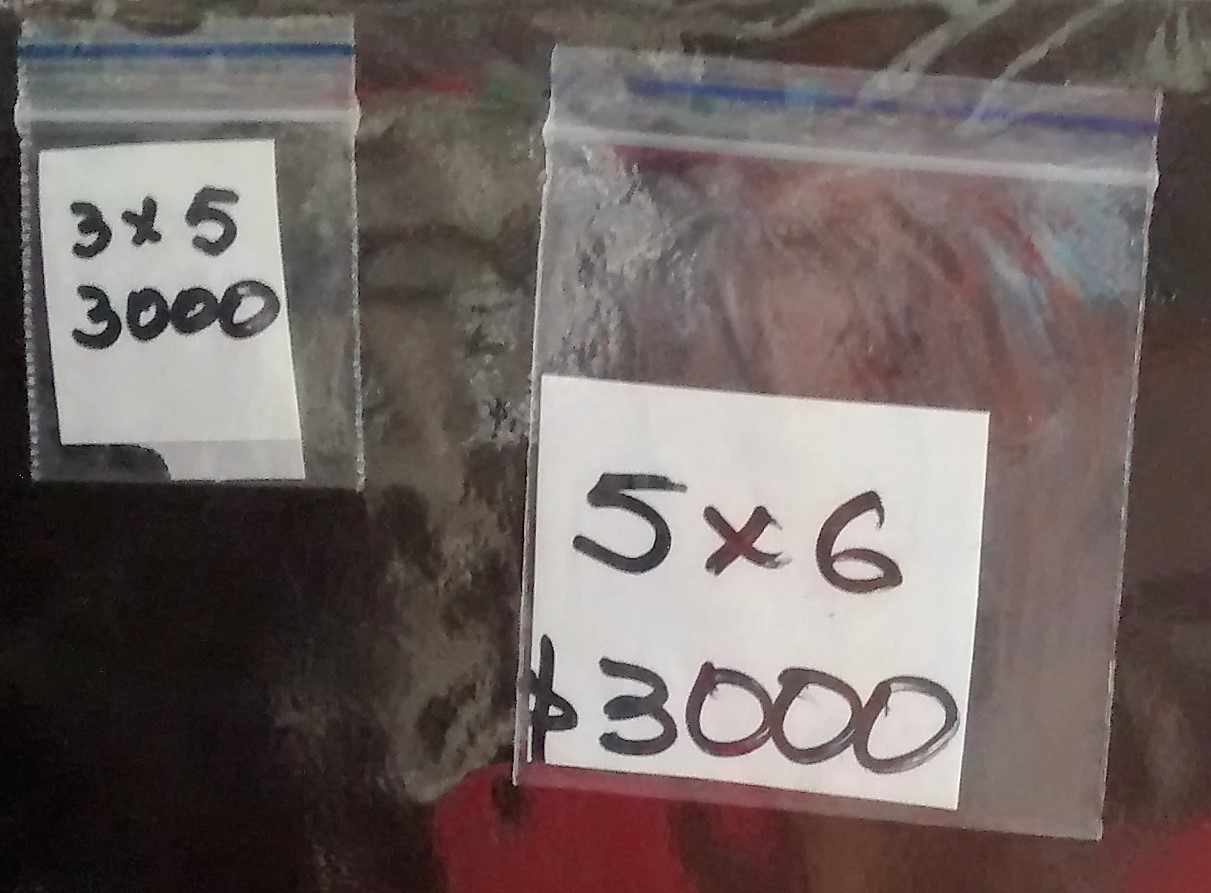 3x5
3000
5x6
$3000